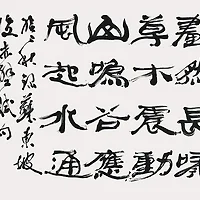 劃然長嘯
草木震動
山鳴谷應
風起水涌
秋錄蘇東坡
後赤壁賦句